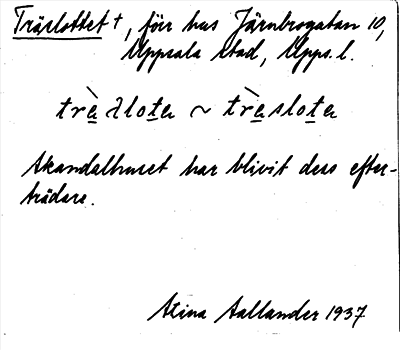 Träslottet †, förr hus Järnbrogatan 10,
Uppsala stad, Upps. l.
trè̱ƨlota̱ ~ trè̱slota̱
Skandalhuset har blivit dess efter-
trädare.
Stina Sallander 1937